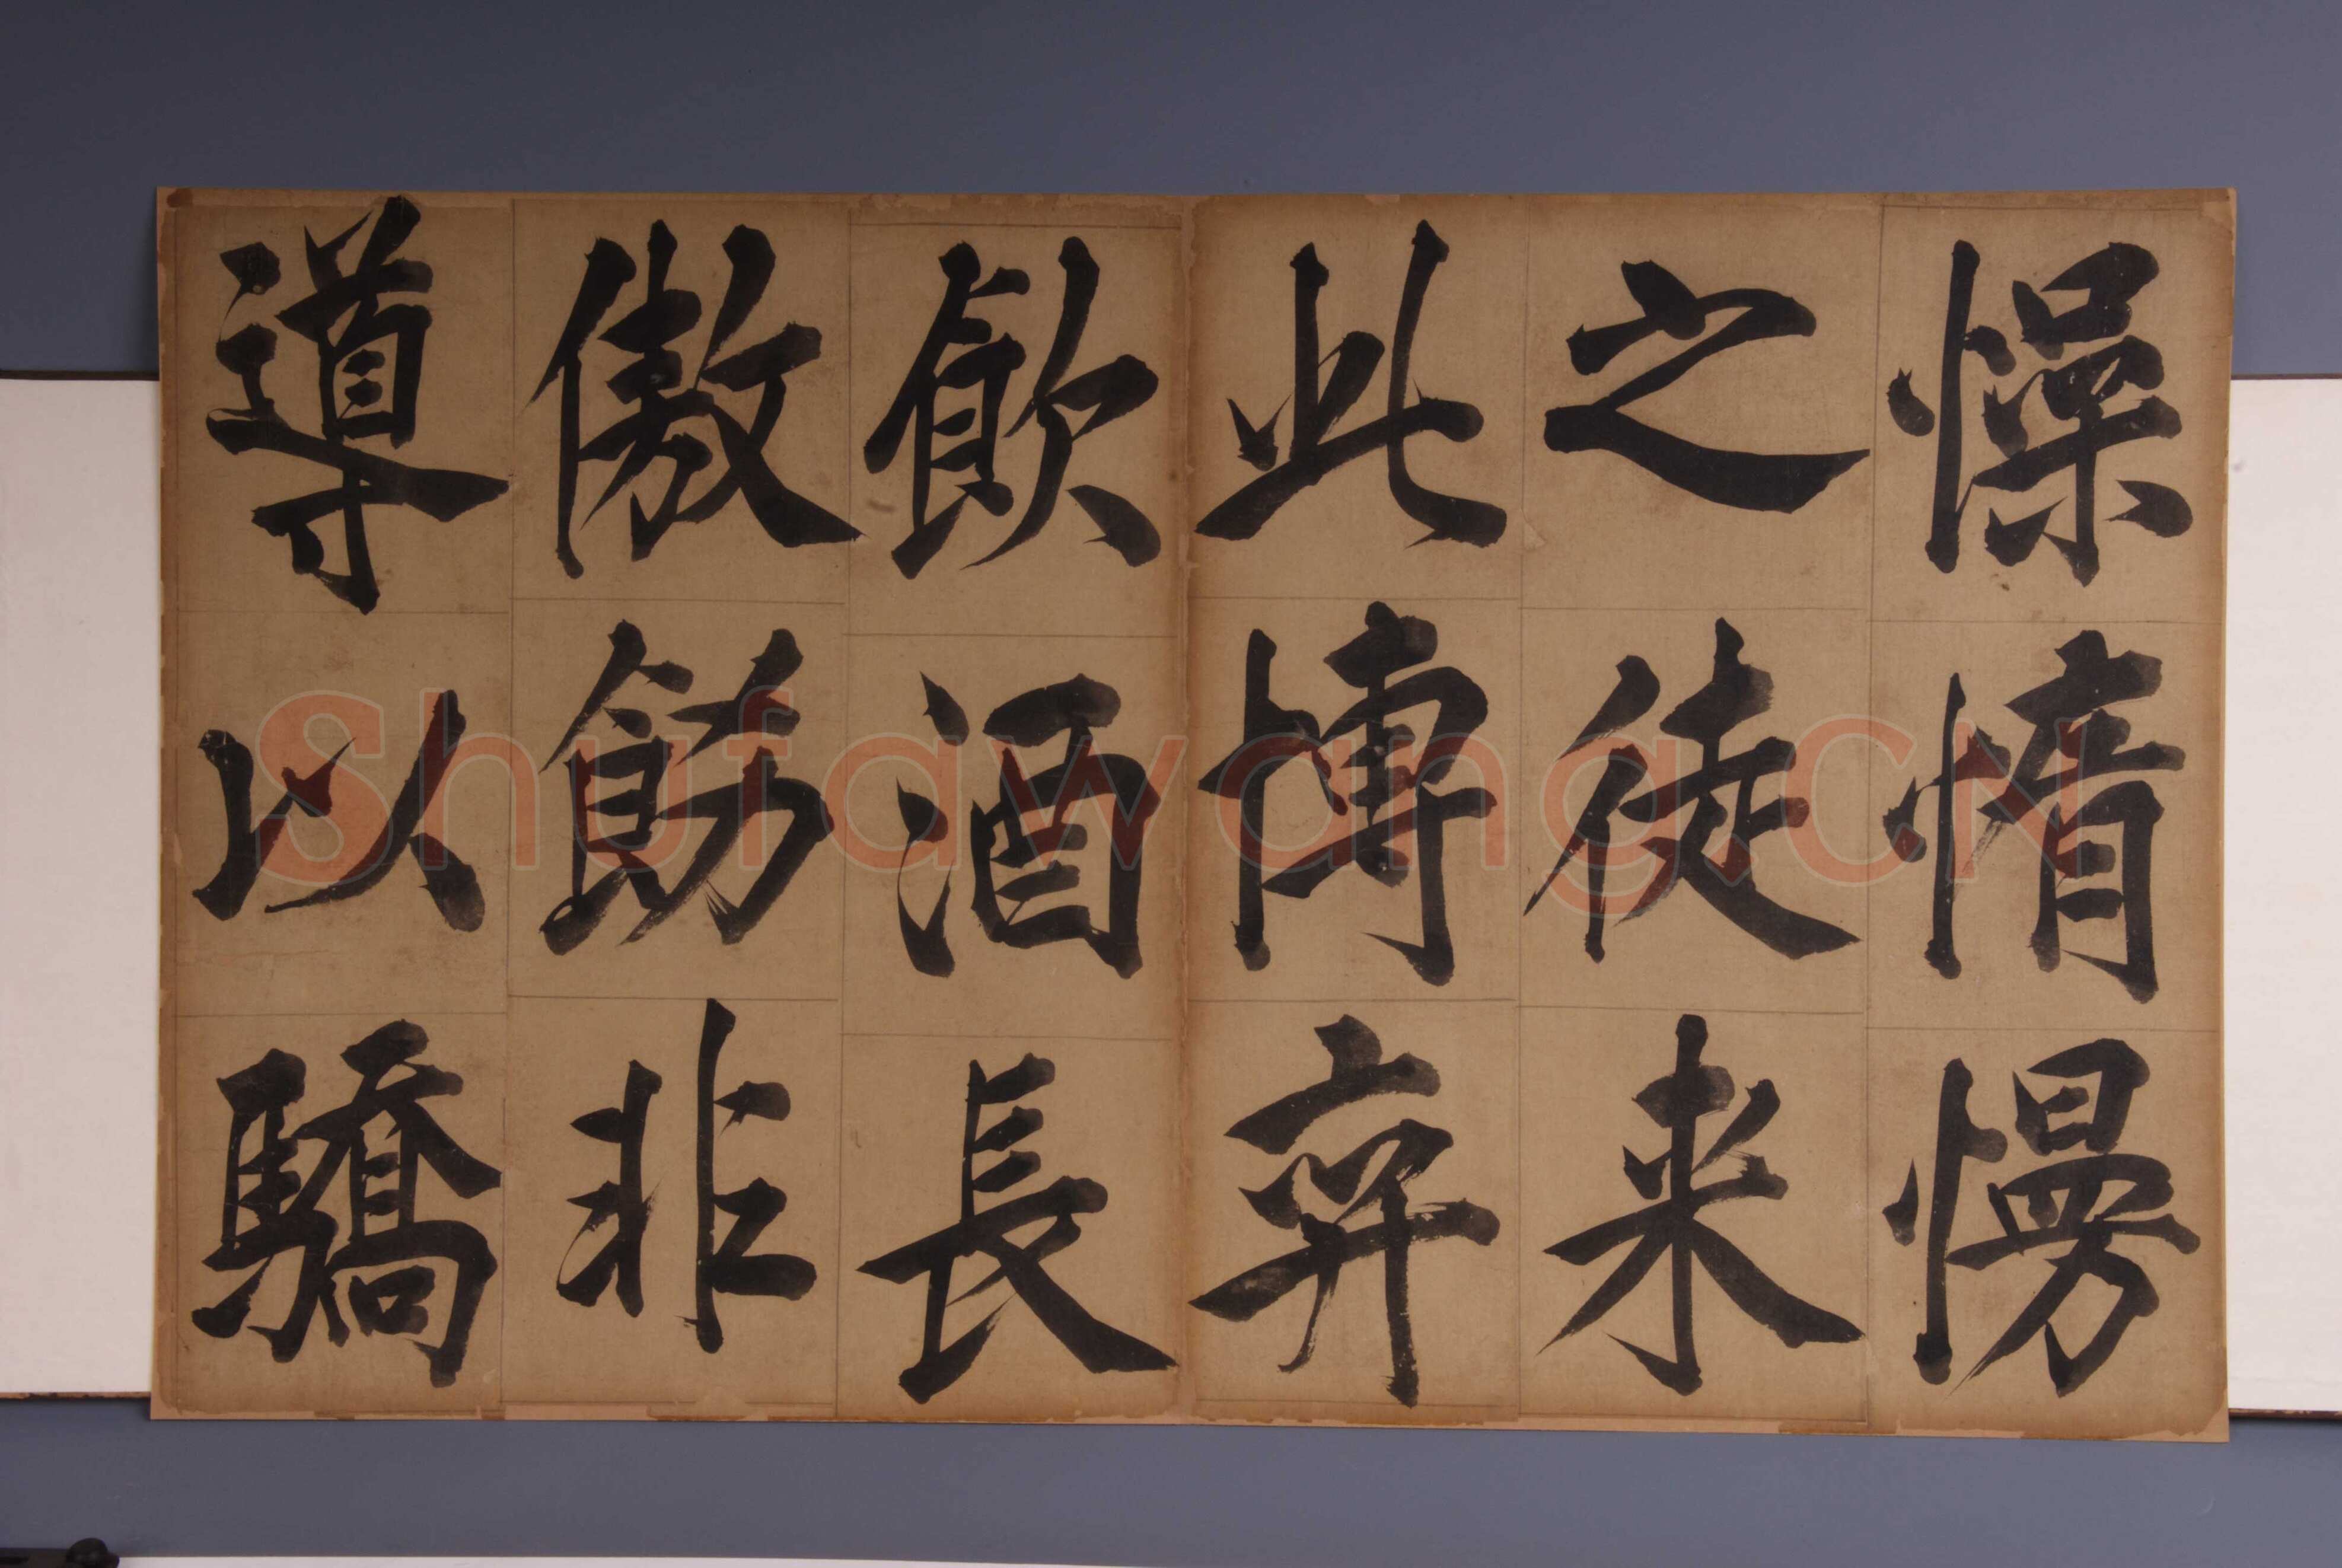 懆惰慢
之徒来
此博弈
飲酒長
傲飭非
導以驕
Shufawang.CN